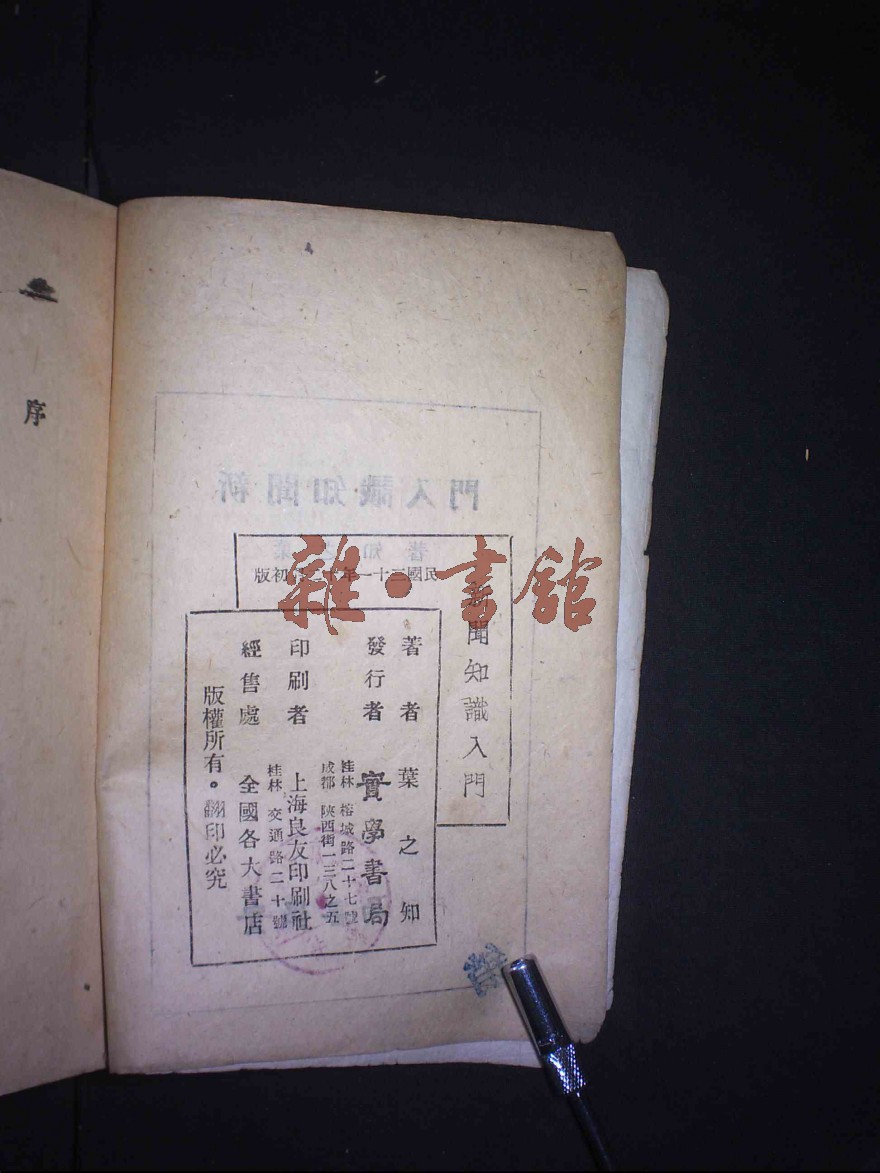 雜·書館
聞知識入門
民國三十一年 初版
著者 葉之知
發行者 實學書局
桂林 榕城路二十七號
成都 陝西街一三八之五
印刷者 上海良友印刷社
桂林 交通路二十號
經售處 全國各大書店
版權所有。翻印必究
序